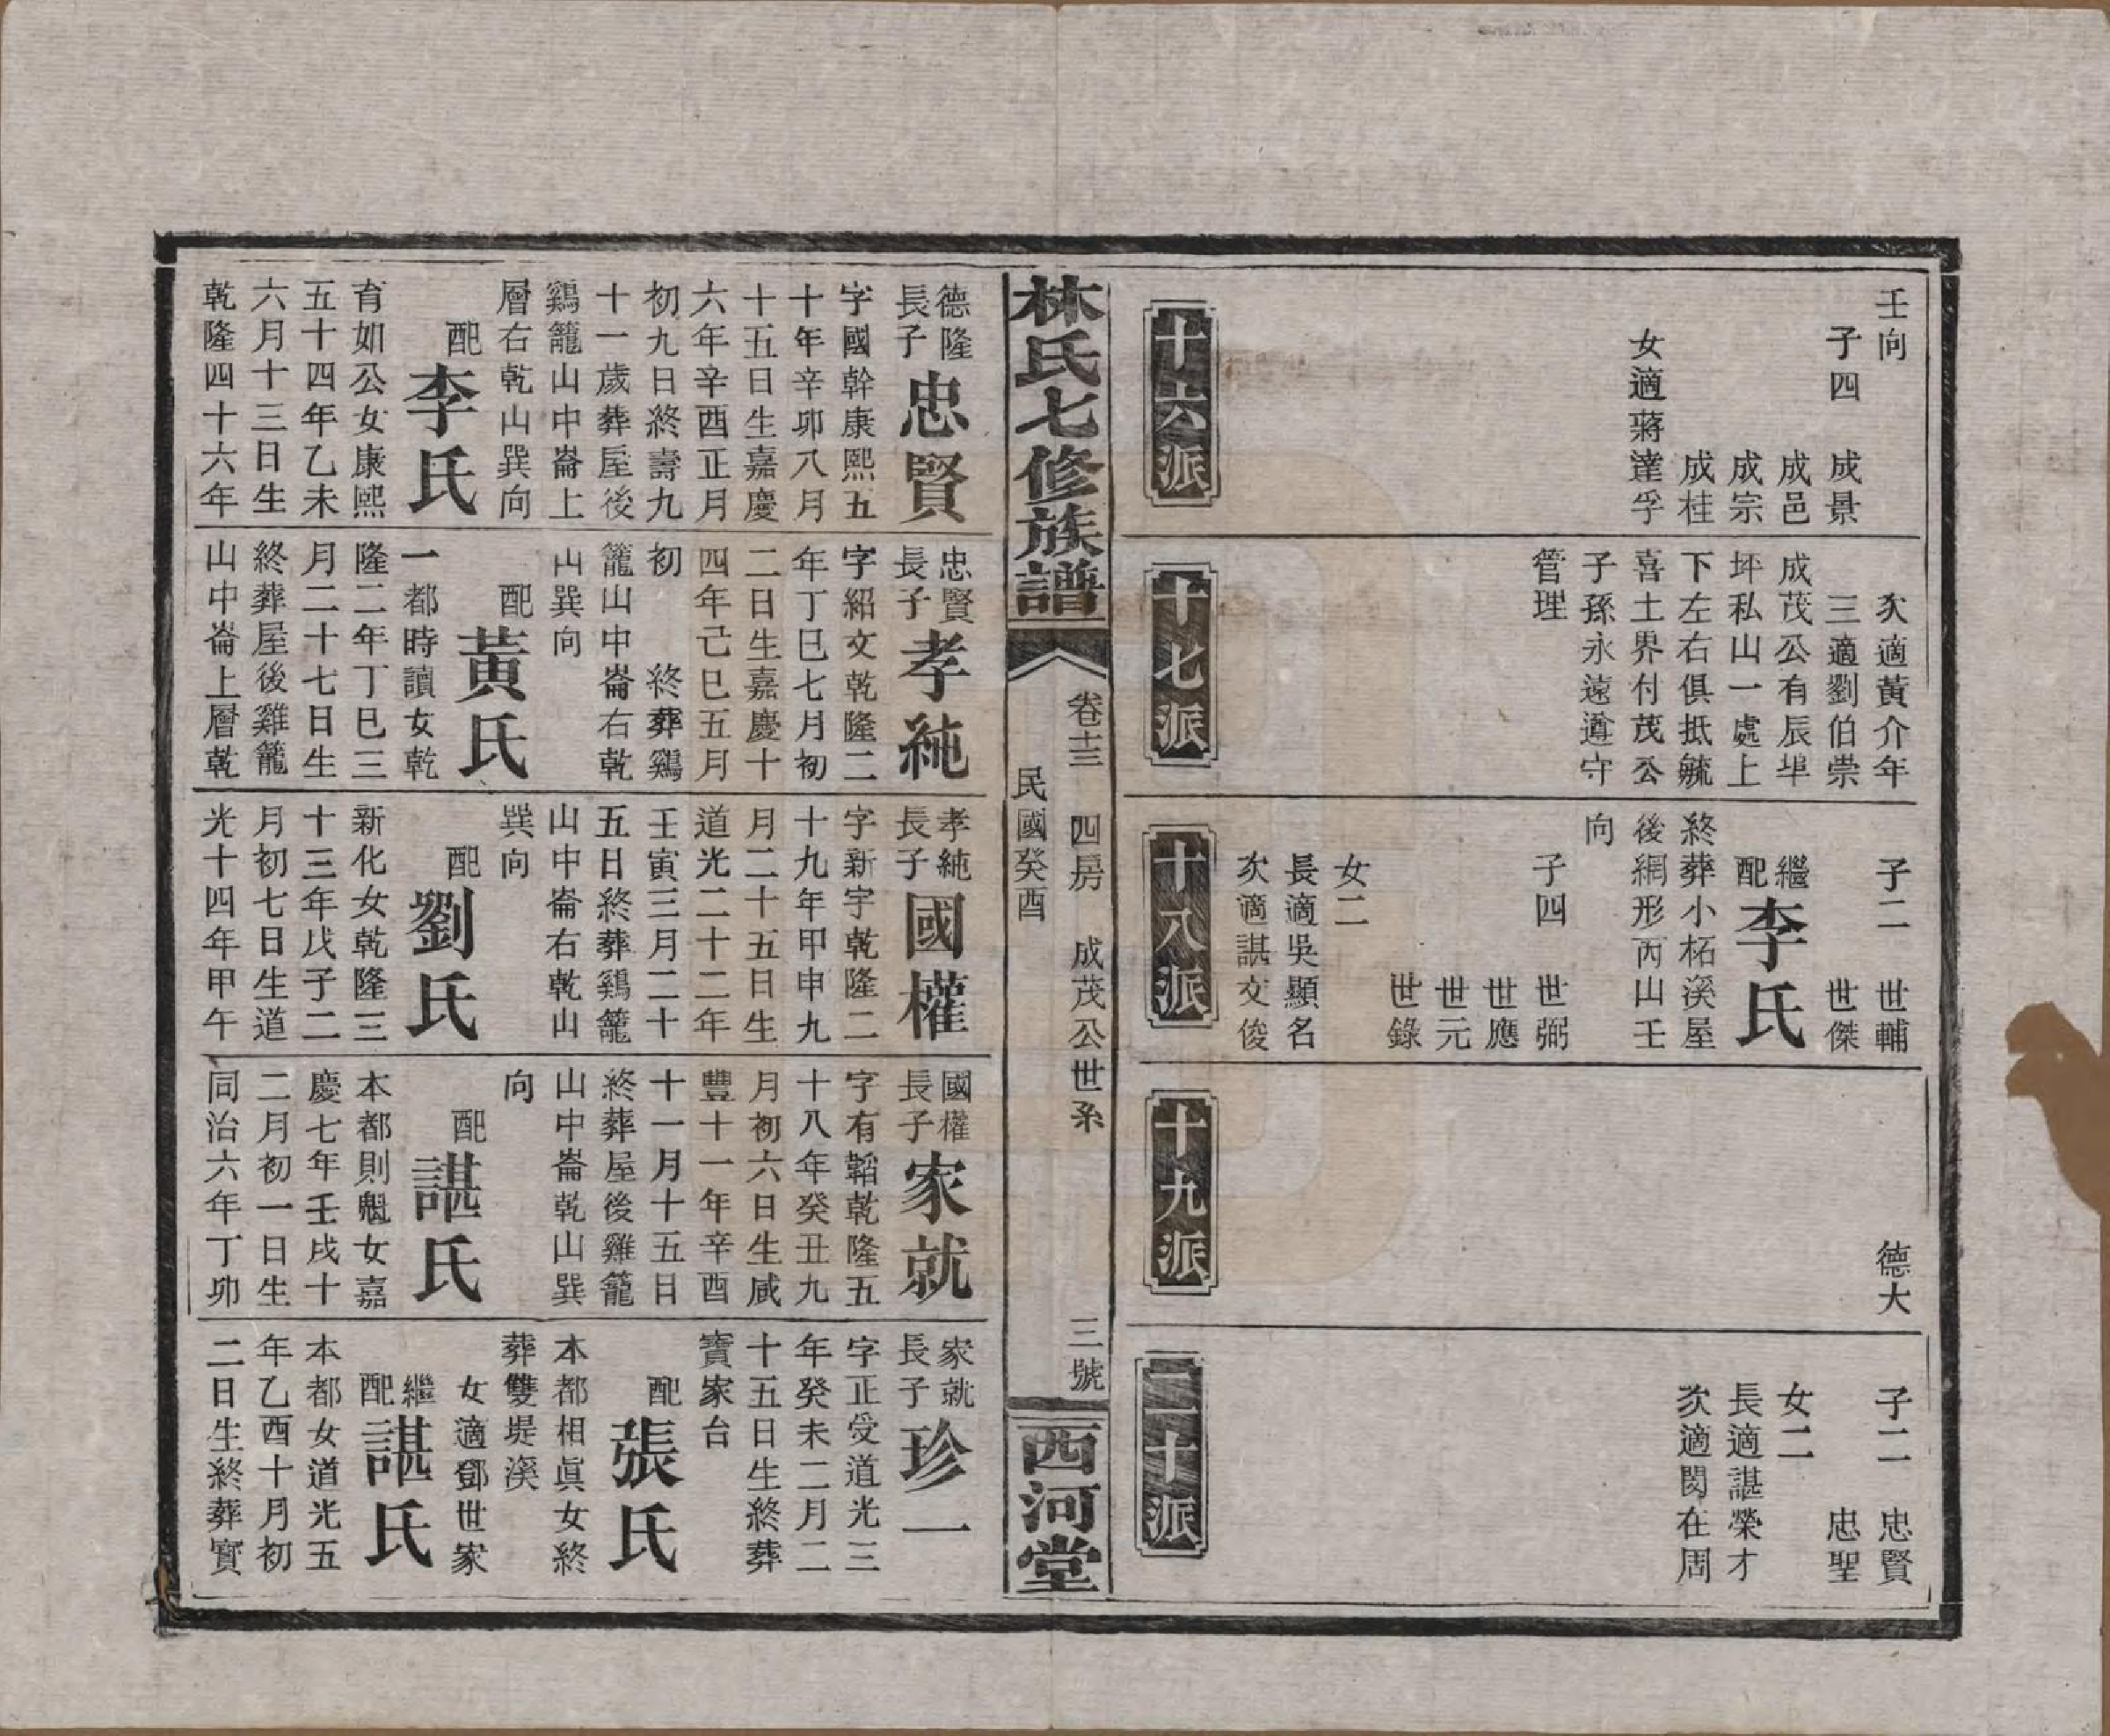 壬向
子四 成景
成邑
成宗
成桂
女適蔣達孚
十六派
次適黃介年
三適劉伯崇
成茂公有辰埠
坪私山一處上
下左右俱抵毓
喜土界付茂公
子孫永遠遵守
管理
十七派
子二 世輔
世傑
繼配李氏
終葬小柘溪屋
後網形丙山壬
向
子四 世弼
世應
世元
世錄
女二
長適吳顯名
次適諶文俊
十八派
德大
十九派
子二 忠賢
忠聖
女二
長適諶榮才
次適閔在周
二十派
林氏七修族譜
卷十三 四房 成茂公世系 三號
民國癸酉
西河堂
德隆長子忠賢
字國幹康熙五
十年辛卯八月
十五日生嘉慶
六年辛酉正月
初九日終壽九
十一歲葬屋後
鷄籠山中崙上
層右乾山巽向
配李氏
育如公女康熙
五十四年乙未
六月十三日生
乾隆四十六年
忠賢長子孝純
字紹文乾隆二
年丁巳七月初
二日生嘉慶十
四年己巳五月
初 終葬鷄
籠山中崙右乾
山巽向
配黃氏
一都時讀女乾
隆二年丁巳三
月二十七日生
終葬屋後雞籠
山中崙上層乾
孝純長子國權
字新宇乾隆二
十九年甲申九
月二十五日生
道光二十二年
壬寅三月二十
五日終葬鷄籠
山中崙右乾山
巽向
配劉氏
新化女乾隆三
十三年戊子二
月初七日生道
光十四年甲午
國權長子家就
字有韜乾隆五
十八年癸丑九
月初六日生咸
豐十一年辛酉
十一月十五日
終葬屋後雞籠
山中崙乾山巽
向
配諶氏
本都則魁女嘉
慶七年壬戌十
二月初一日生
同治六年丁卯
家就長子珍一
字正受道光三
年癸未二月二
十五日生終葬
寶家台
配張氏
本都相眞女終
葬雙堤溪
女適鄧世家
繼配諶氏
本都女道光五
年乙酉十月初
二日生終葬寶